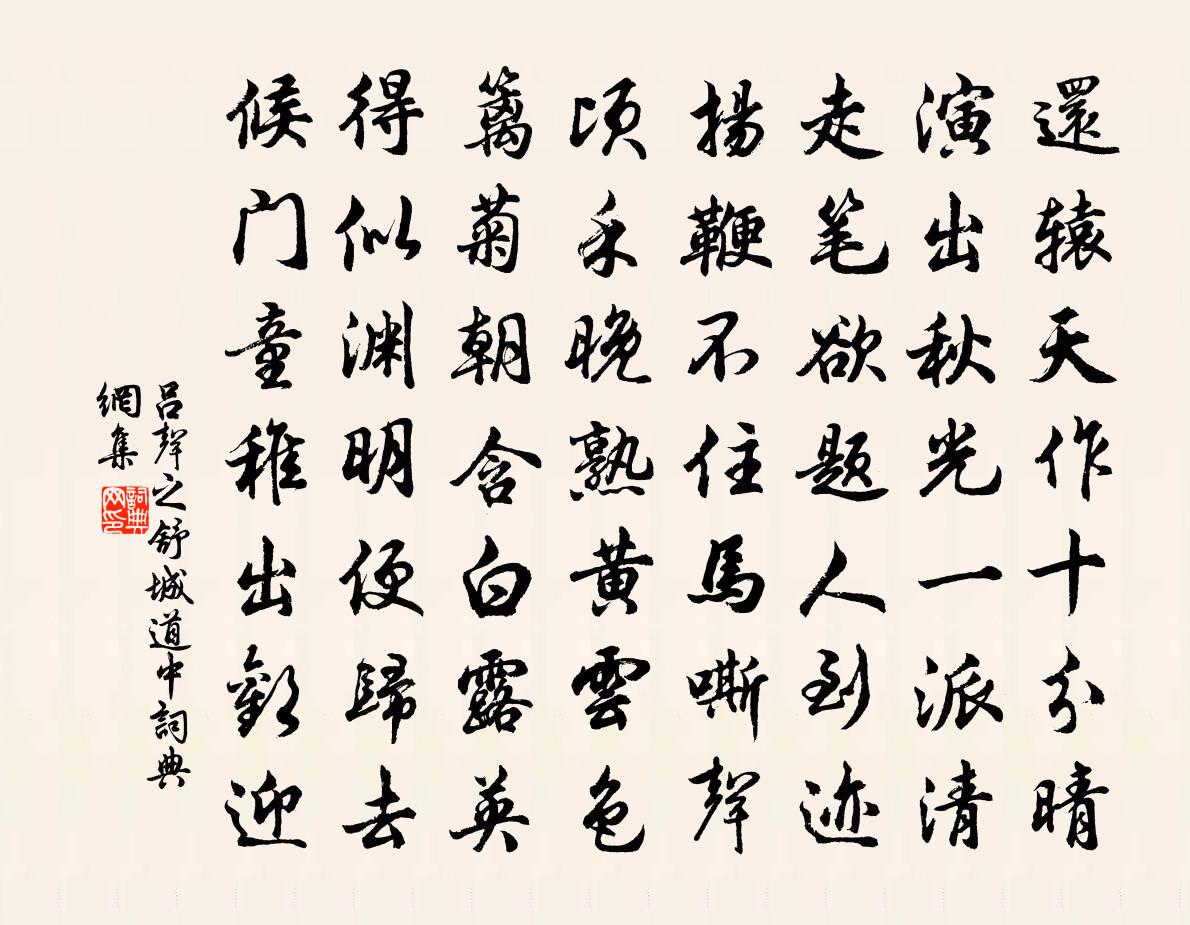 還辕天作十分晴
演出秋光一派清
走笔欲题人到迹
揚鞭不住馬嘶聲
頃禾晚熟黄雲色
篱菊朝含白露英
得似渊明便歸去
候门童稚出歡迎
吕聲之舒城道中詞典
網集
詞典
网印